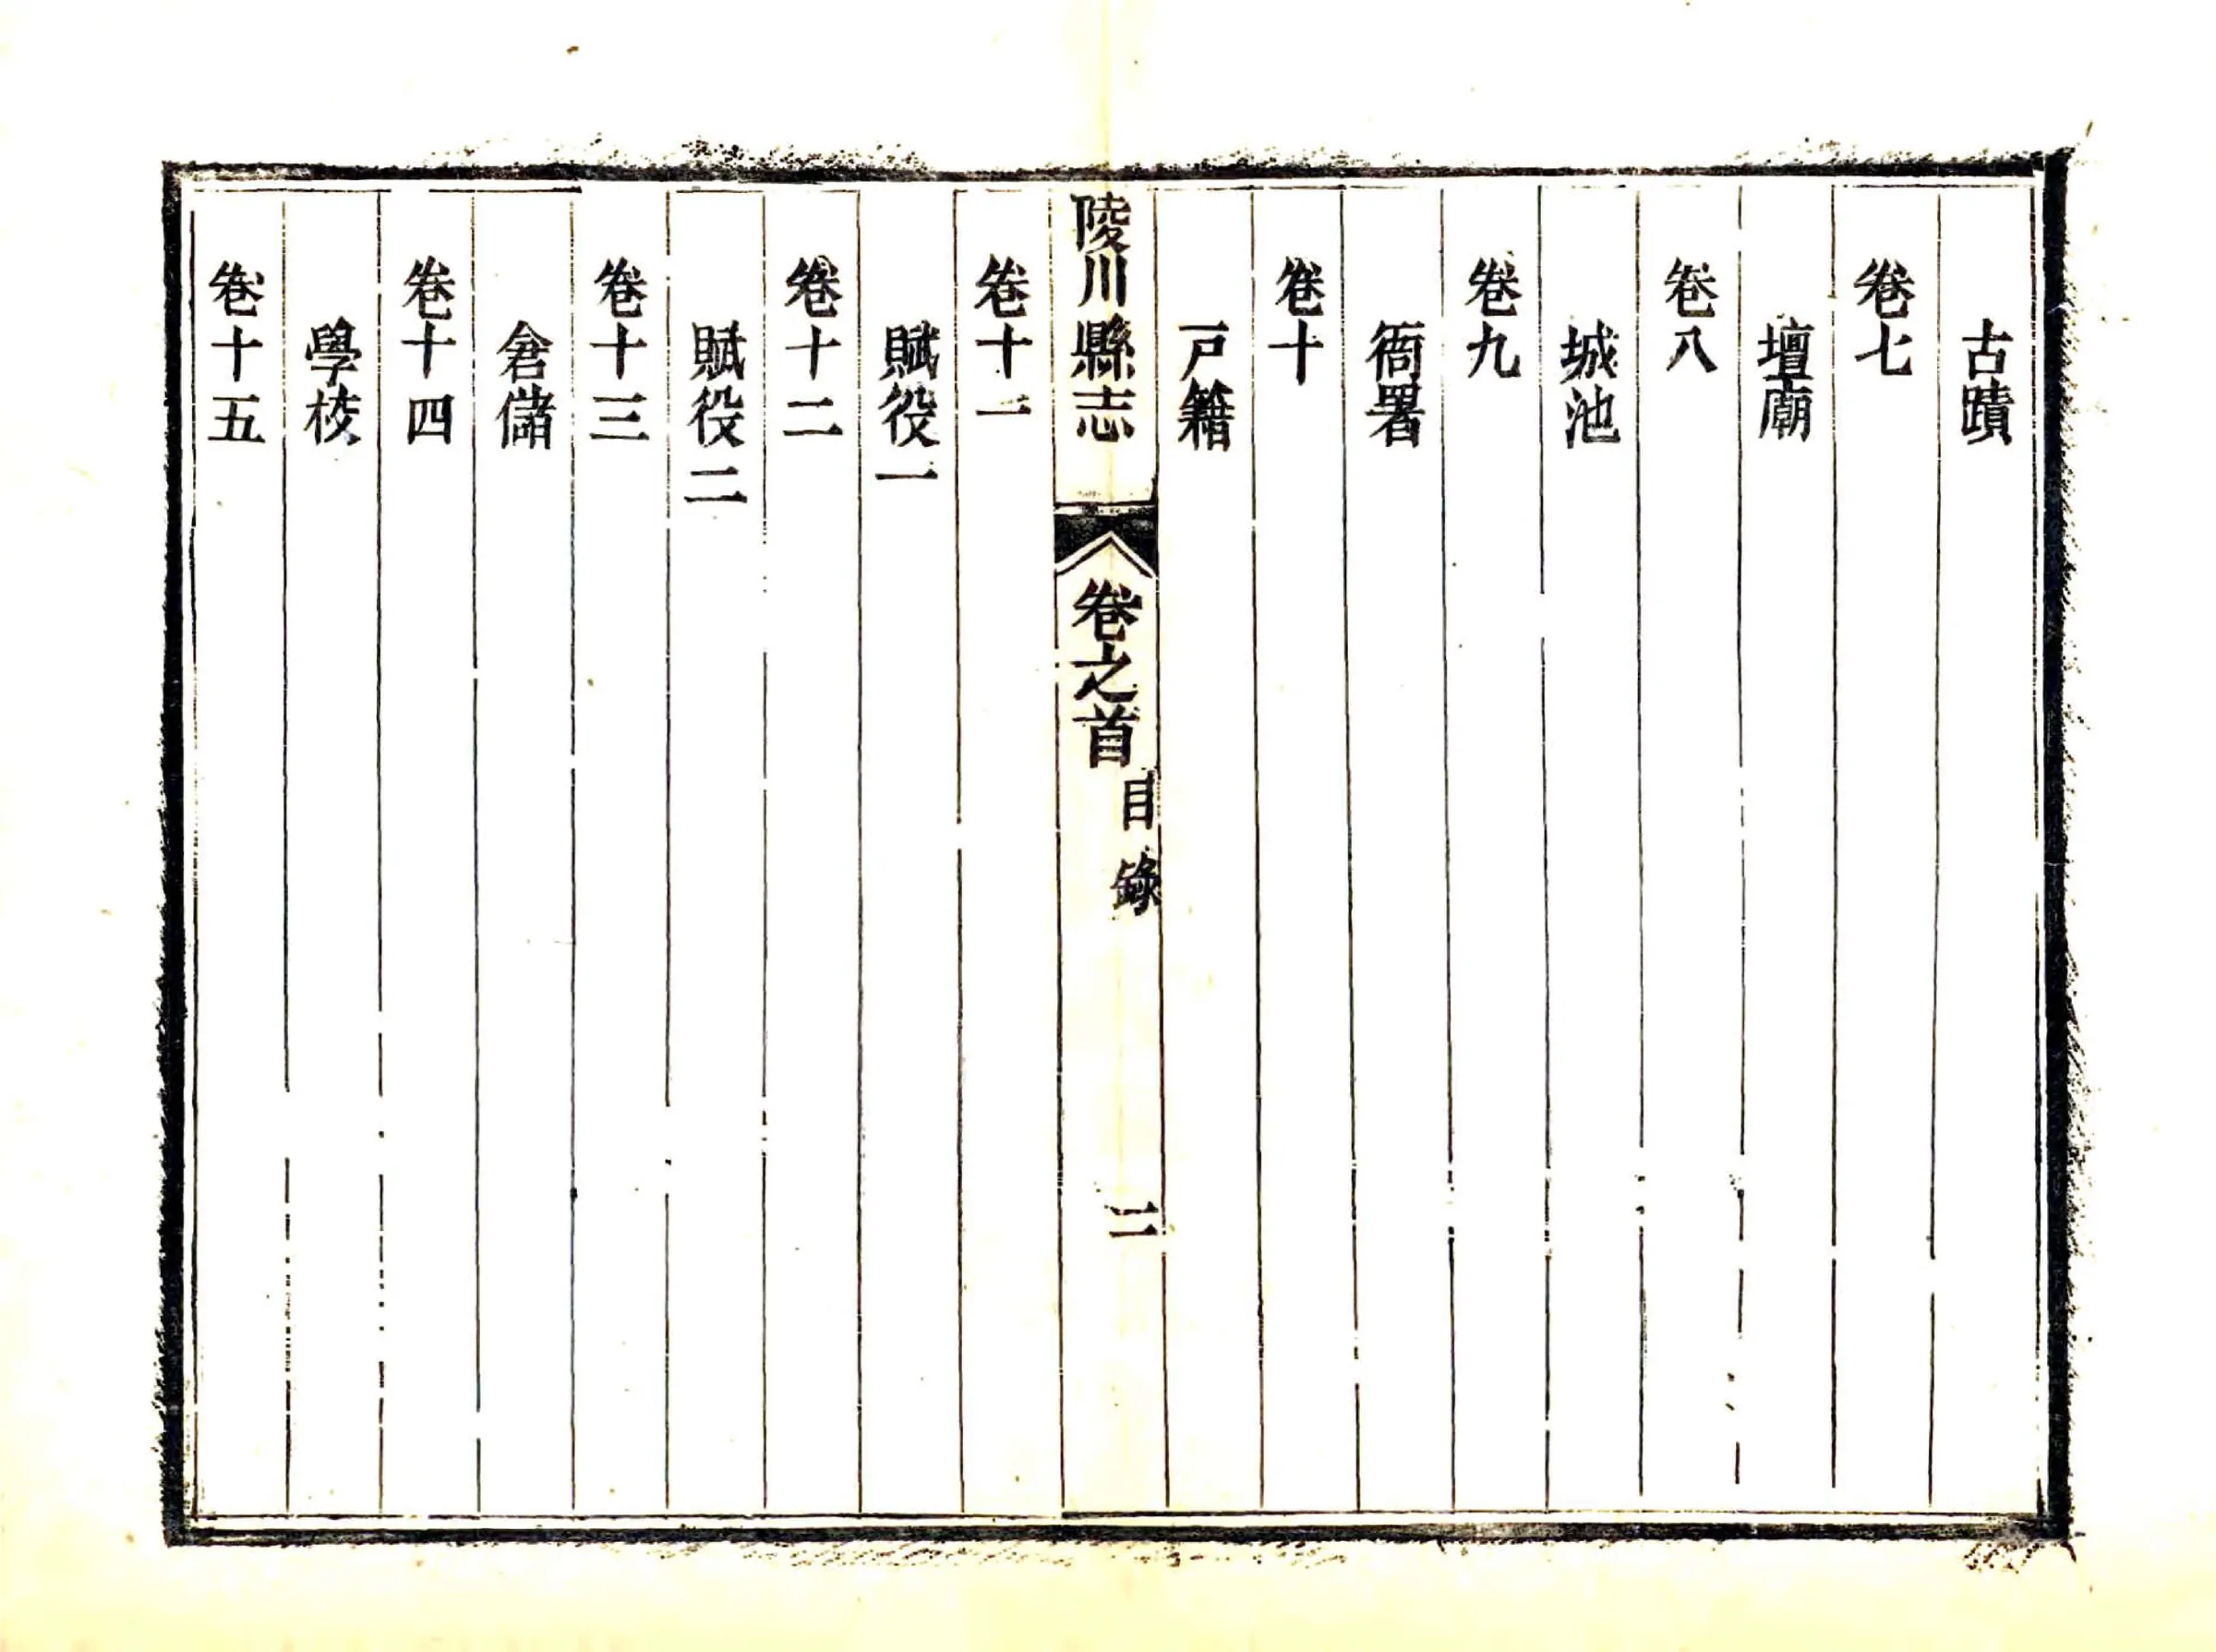 古蹟
卷七
壇廟
卷八
城池
卷九
衙署
卷十
戸籍
陵川縣志
卷之首
目錄
二
卷十一
賦役一
卷十二
賦役二
卷十三
倉儲
卷十四
學校
卷十五